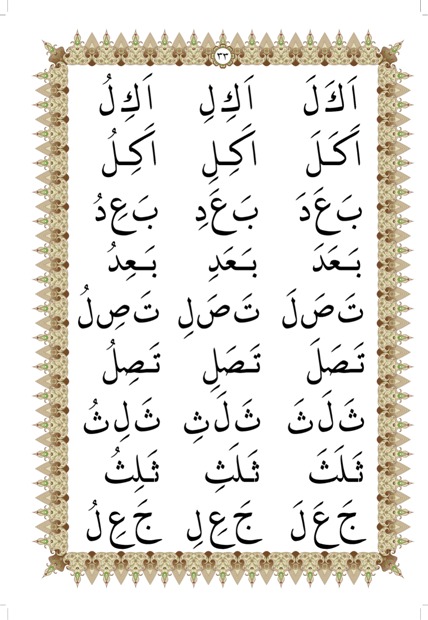 ٣٣
اَكَلَ اَكِلِ اَكِلُ
اَكَـلَ اَكِـلِ اَكِـلُ
بَ عَ دَ بَ عَ دِ بَ عِ دُ
بَـعَدَ بَـعَدِ بَـعِدُ
تَ صَ لَ تَ صَ لِ تَ صِ لُ
تَـصَلَ تَـصَلِ تَـصِلُ
ثَ لَ ثَ ثَ لَ ثِ ثَ لِ ثُ
ثَـلَثَ ثَـلَثِ ثَـلِثُ
جَ عَ لَ جَ عِ لِ جَ عِ لُ